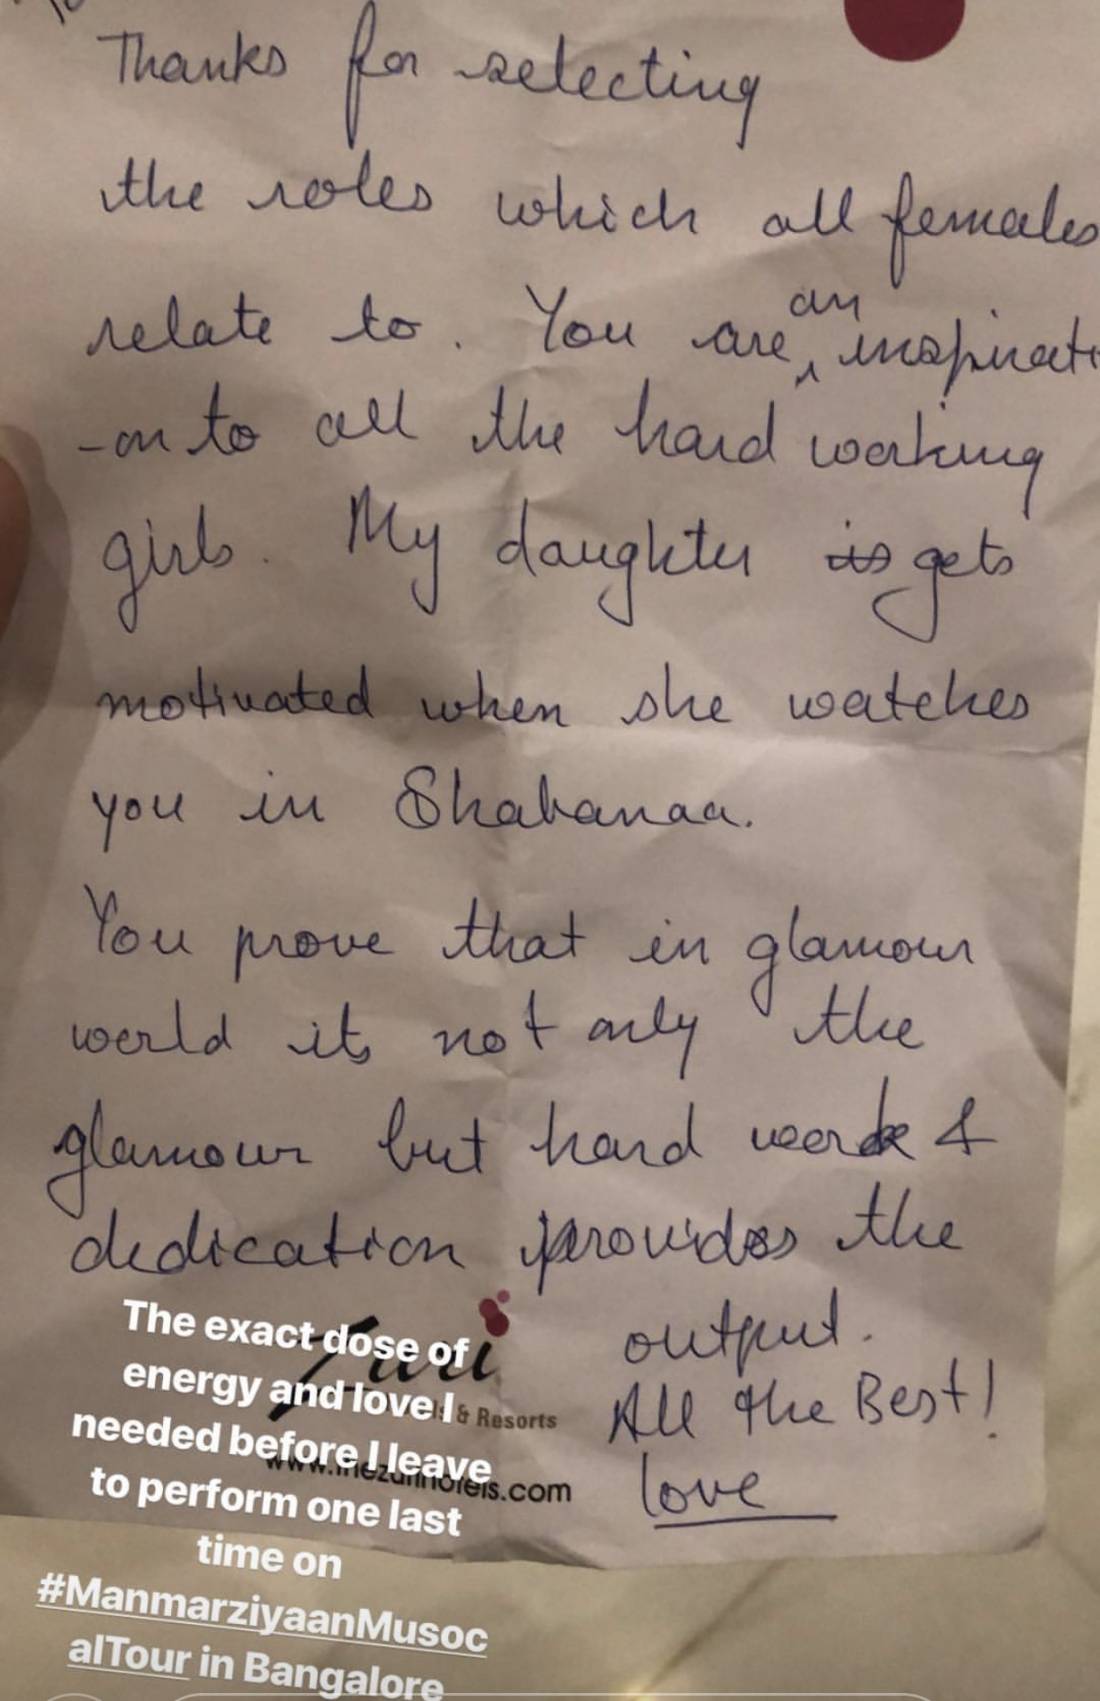 Thanks for selecting
the roles which all females
relate to. You are an inspirati
-on to all the hard working
girls. My daughter is gets
motivated when she watches
you in Shabanaa.
You prove that in glamour
world its not only the
glamour but hard work &
dedication provides the
output.
All the Best!
love
Zuri
& Resorts
www.thezurihotels.com
The exact dose of
energy and love I
needed before I leave
to perform one last
time on
#ManmarziyaanMusoc
alTour in Bangalore